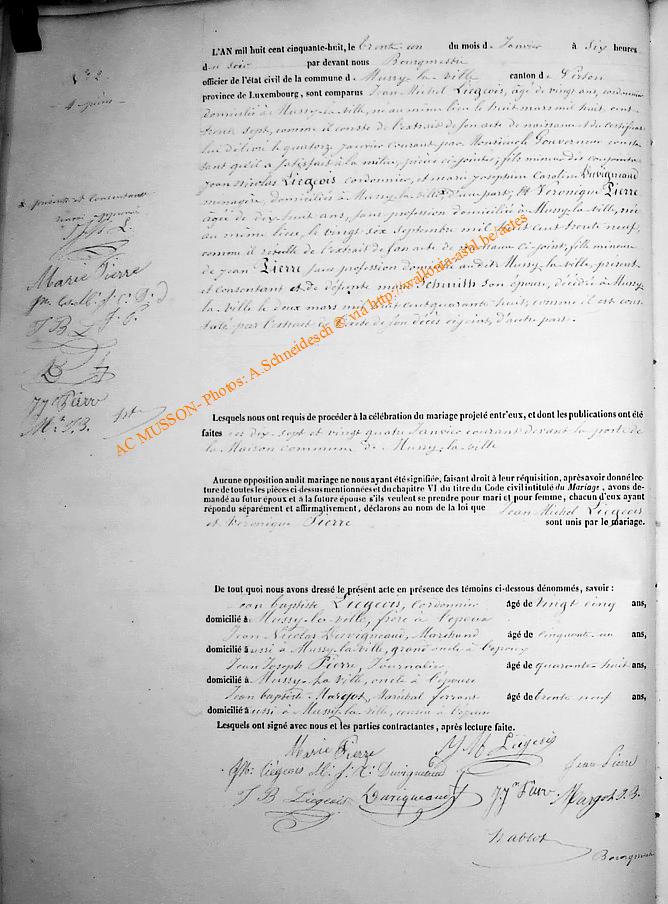 N° 2
L'AN mil huit cent cinquante-huit, le trente un du mois de Janvier à Six heures
du soir par devant nous Bourgmestre
officier de l'état civil de la commune de Mussy-la-ville canton de Virton
province de Luxembourg, sont comparus Jean Michel Liégeois, âgé de vingt ans, cordonnier
domicilié à Mussy-la-ville, né au même lieu le huit mars mil huit cent
trente sept, comme il conste de l'extrait de son acte de naissance et du certificat
lui délivré le quatorze janvier courant par Monsieur le Gouverneur consta
tant qu'il a satisfait à la milice, pièces ci jointes, fils mineur des conjoints
Jean Nicolas Liégeois cordonnier, et Marie Josephine Caroline Duvigneaud
ménagère, domiciliés à Mussy-la-ville, d'une part; Et Véronique Pierre
âgée de dix huit ans, sans profession domiciliée à Mussy-la-ville, née
au même lieu, le vingt six Septembre mil huit cent trente neuf,
comme il résulte de l'extrait de son acte de naissance ci joint, fille mineure
de Jean Pierre sans profession domicilié audit Mussy-la-ville, présent
et consentant et de défunte Schmith son épouse, décédée à Mussy-
la-ville le deux mars mil huit cent quarante huit, comme il est cons-
taté par l'extrait de l'acte de son décès ci joint, d'autre part.
présents et consentants
J. M. L.
Marie Pierre
J B L
JJn Pierre
M. J. B.
Lesquels nous ont requis de procéder à la célébration du mariage projeté entr'eux, et dont les publications ont été
faites les dix-sept et vingt quatre Janvier courant devant la porte de
la Maison commune de Mussy-la-ville
Aucune opposition audit mariage ne nous ayant été signifiée, faisant droit à leur réquisition, après avoir donné lec-
ture de toutes les pièces ci-dessus mentionnées et du chapitre VI du titre du Code civil intitulé du Mariage, avons de-
mandé au futur époux et à la future épouse s'ils veulent se prendre pour mari et pour femme, chacun d'eux ayant
répondu séparément et affirmativement, déclarons au nom de la loi que Jean Michel Liégeois
et Véronique Pierre sont unis par le mariage.
De tout quoi nous avons dressé le présent acte en présence des témoins ci-dessous dénommés, savoir :
Jean baptiste Liégeois, Cordonnier âgé de vingt cinq ans,
domicilié à Mussy-la-ville, frère à l'époux
Jean Nicolas Duvigneaud, Marchand âgé de cinquante-un ans,
domicilié aussi à Mussy-la-ville, grand oncle à l'époux
Jean Joseph Pierre, Journalier âgé de quarante-huit ans,
domicilié à Mussy-la-ville, oncle à l'épouse
Jean baptiste Margot, Maréchal ferrant âgé de trente neuf ans,
domicilié aussi à Mussy-la-ville, cousin à l'époux
Lesquels ont signé avec nous et les parties contractantes, après lecture faite.
Marie Pierre J M Liégeois
Liégeois M. J. C. Duvigneaud Jean Pierre
J B Liégeois Duvigneaud JJn Pierre Margot J. B.
Bourgmestre
AC MUSSON- Photos: A.Schneidesch ® via http://walkonia-asbl.be/actes